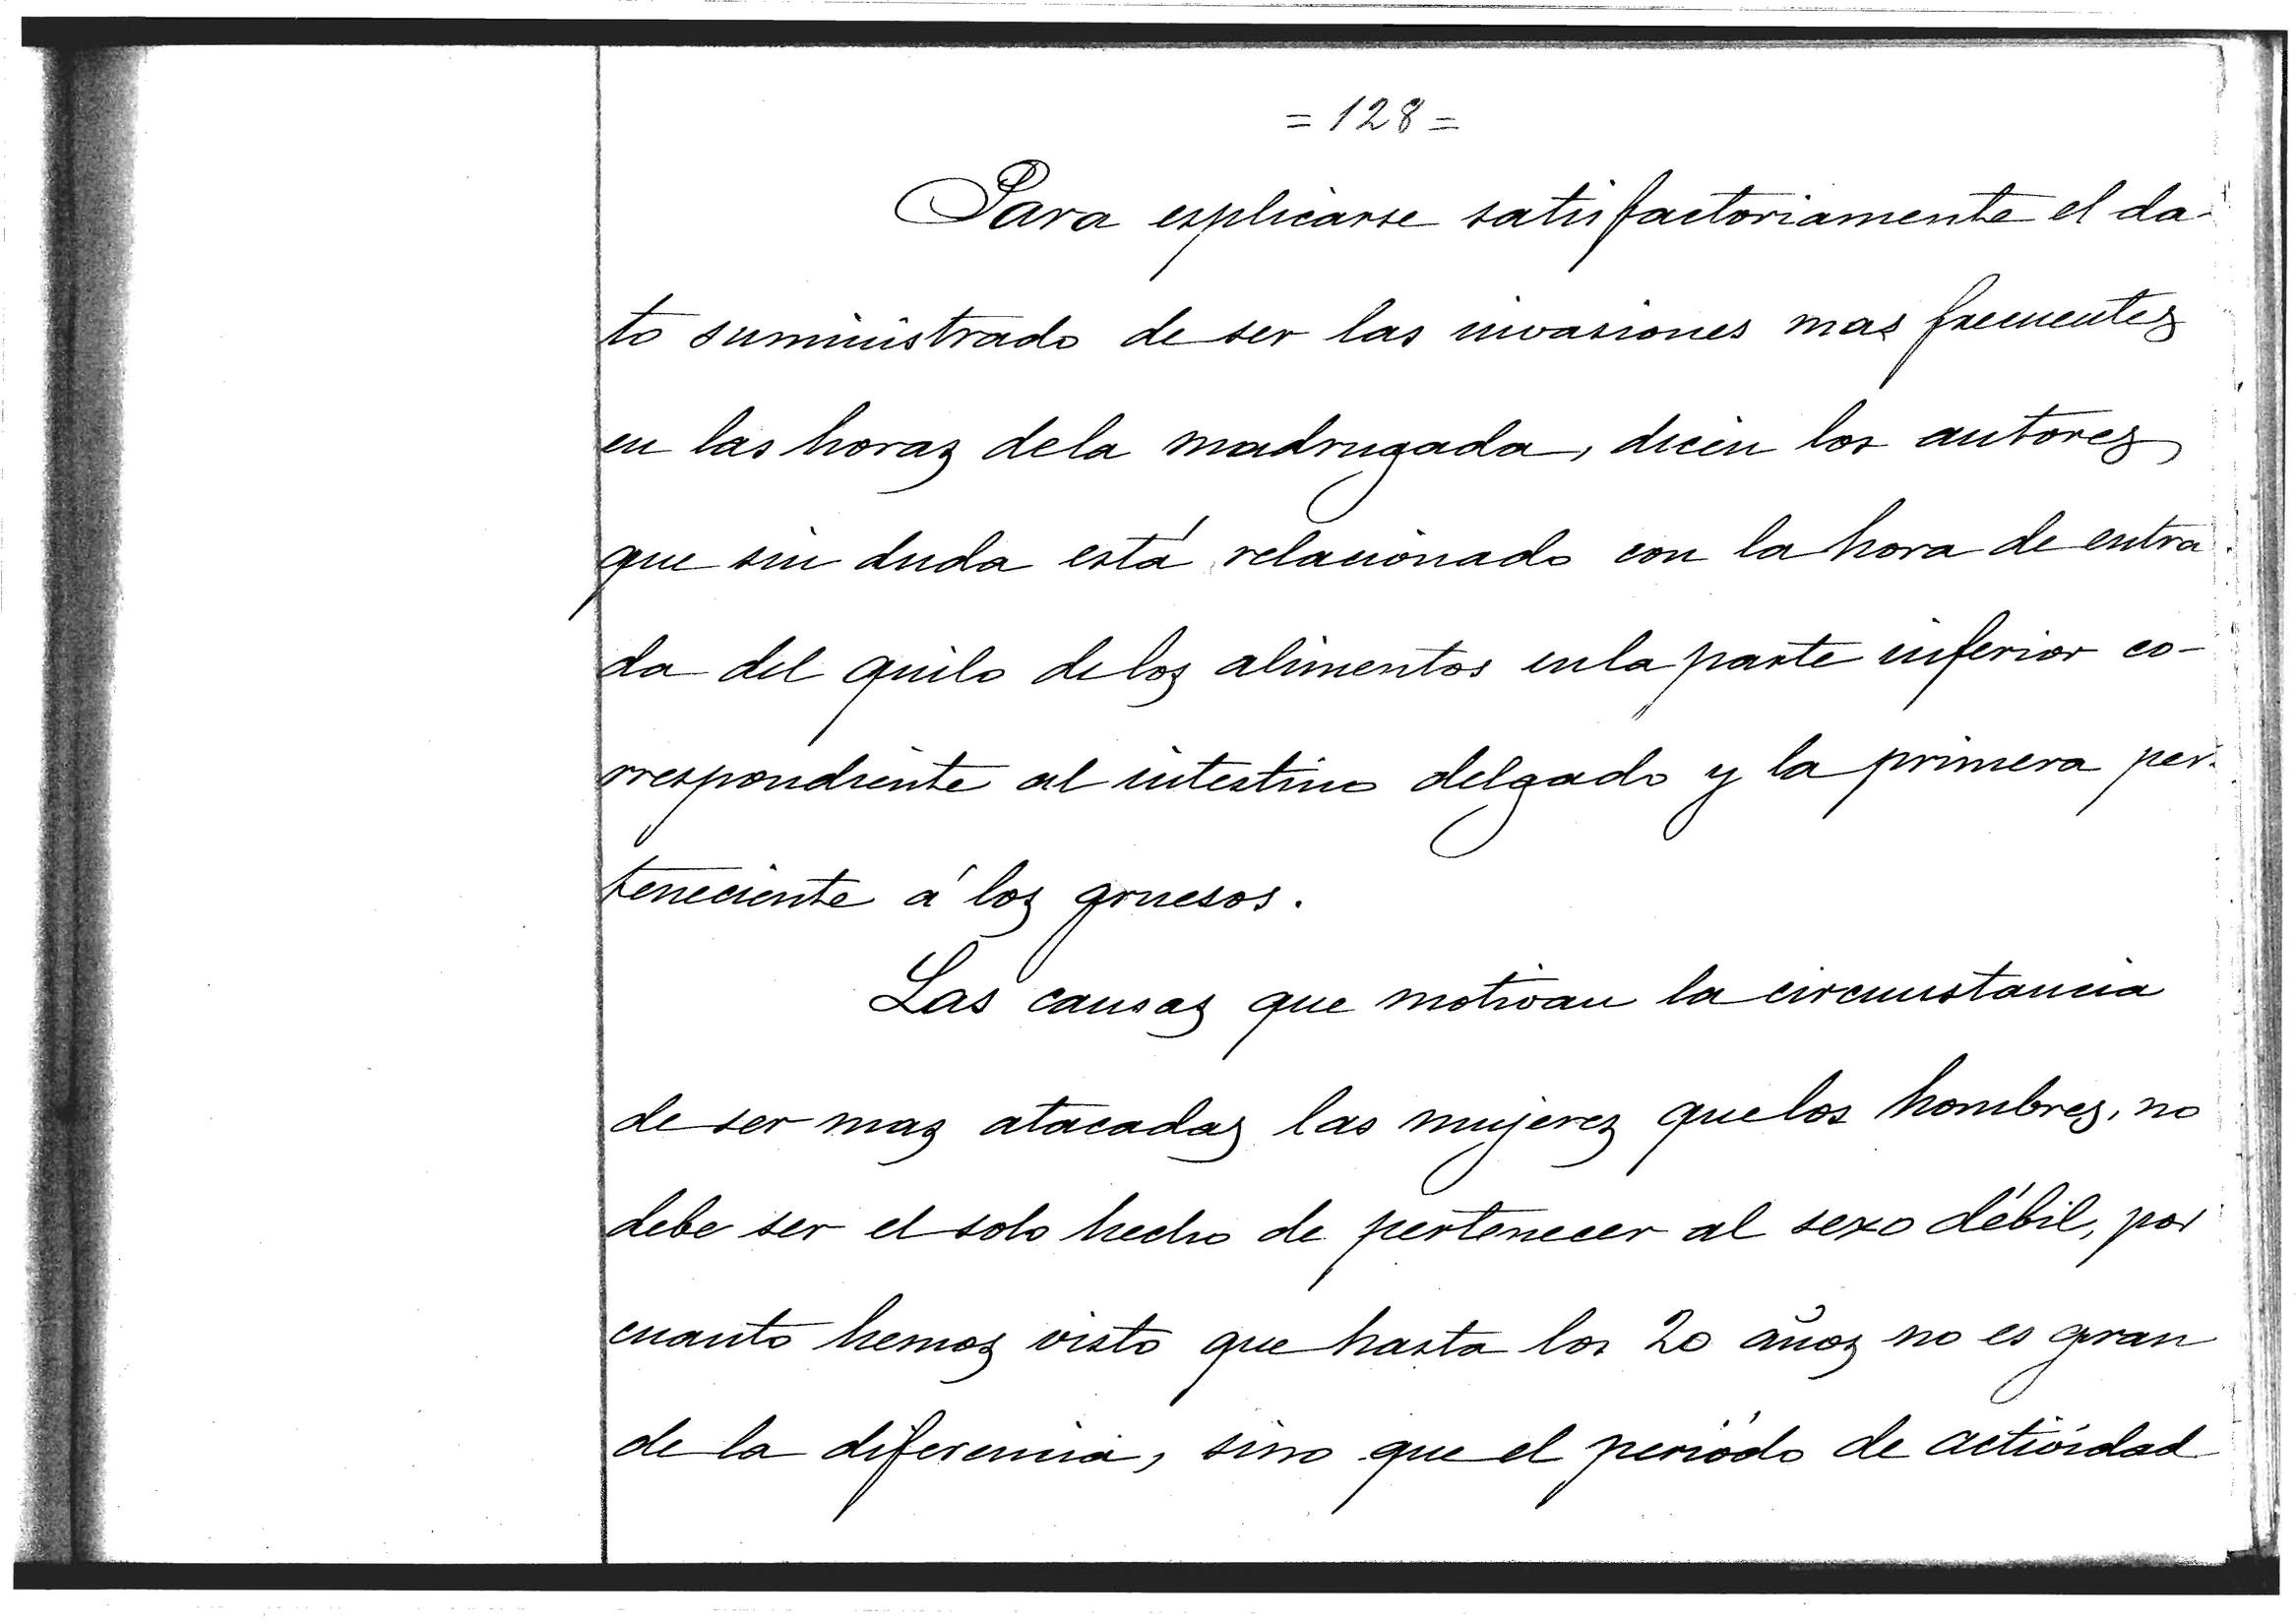 = 128 =
Para esplicarse satisfactoriamente el da-
to suministrado de ser las invasiones mas frecuentes
en las horas dela madrugada, dicen los autores
que sin duda está relacionado con la hora de entra-
da del quilo delos alimentos enla parte inferior co-
rrespondiente al intestino delgado y la primera per-
teneciente á los gruesos.
Las causas que motivan la circunstancia
de ser mas atacadas las mujeres quelos hombres, no
debe ser el solo hecho de pertenecer al sexo débil, por
cuanto hemos visto que hasta los 20 años no es gran
de la diferencia, sino que el periódo de actividad